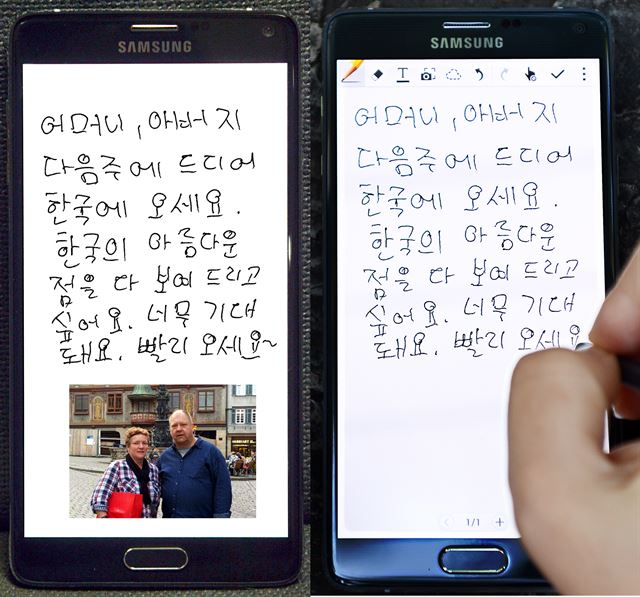 SAMSUNG
어머니, 아버지
다음주에 드디어
한국에 오세요.
한국의 아름다운
점을 다 보여 드리고
싶어요. 너무 기대
돼요. 빨리 오세요~
SAMSUNG
T
어머니, 아버지
다음주에 드디어
한국에 오세요.
한국의 아름다운
점을 다 보여 드리고
싶어요. 너무 기대
돼요. 빨리 오세요
1/1